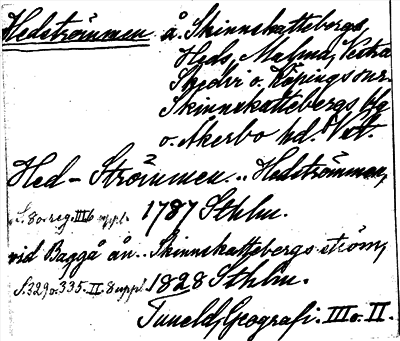 Hedströmmen å Skinnskattebergs,
Heds, Malma, Vestra
Skedvi o. Köpings snr.
Skinnskattebergs bg
o. Åkerbo hd. Vstl.
Hed-Strömmen.. Hedströmmen,
S. 80. reg. III. 6 uppl. 1787 Sthlm.
vid Baggå ån.. Skinnskattebergs ström,
S. 329 o. 335. II. 8 uppl. 1828 Sthlm.
Tuneld, Geografi. III o. II.